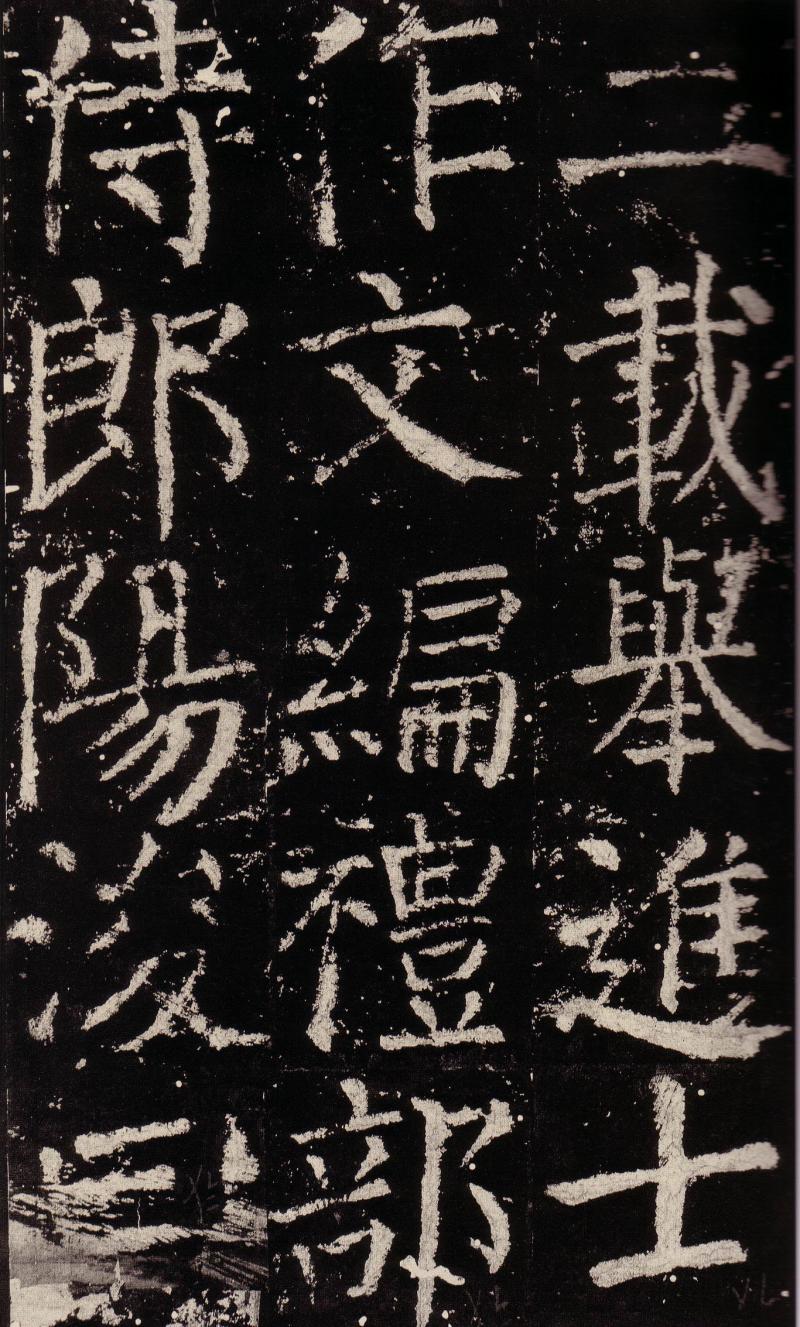 二載舉進士
作文編禮部
侍郎陽浚